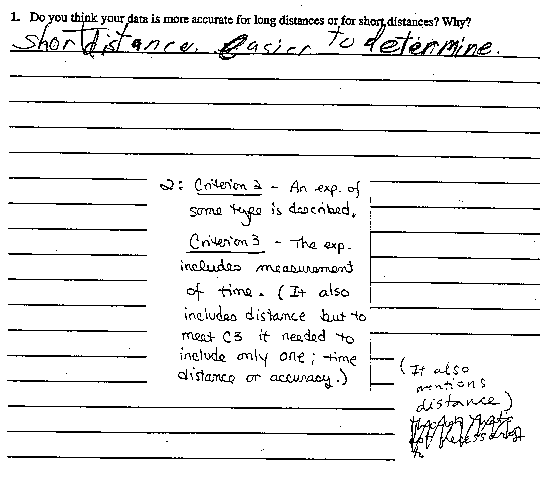 1. Do you think your data is more accurate for long distances or for short distances? Why?
Short distance. Easier to determine.
2: Criterion 2 - An exp. of
some type is described.
Criterion 3 - The exp.
includes measurement
of time. (It also
includes distance but to
meet C3 it needed to
include only one; time
distance or accuracy.)
(It also
mentions
distance)
not necessary